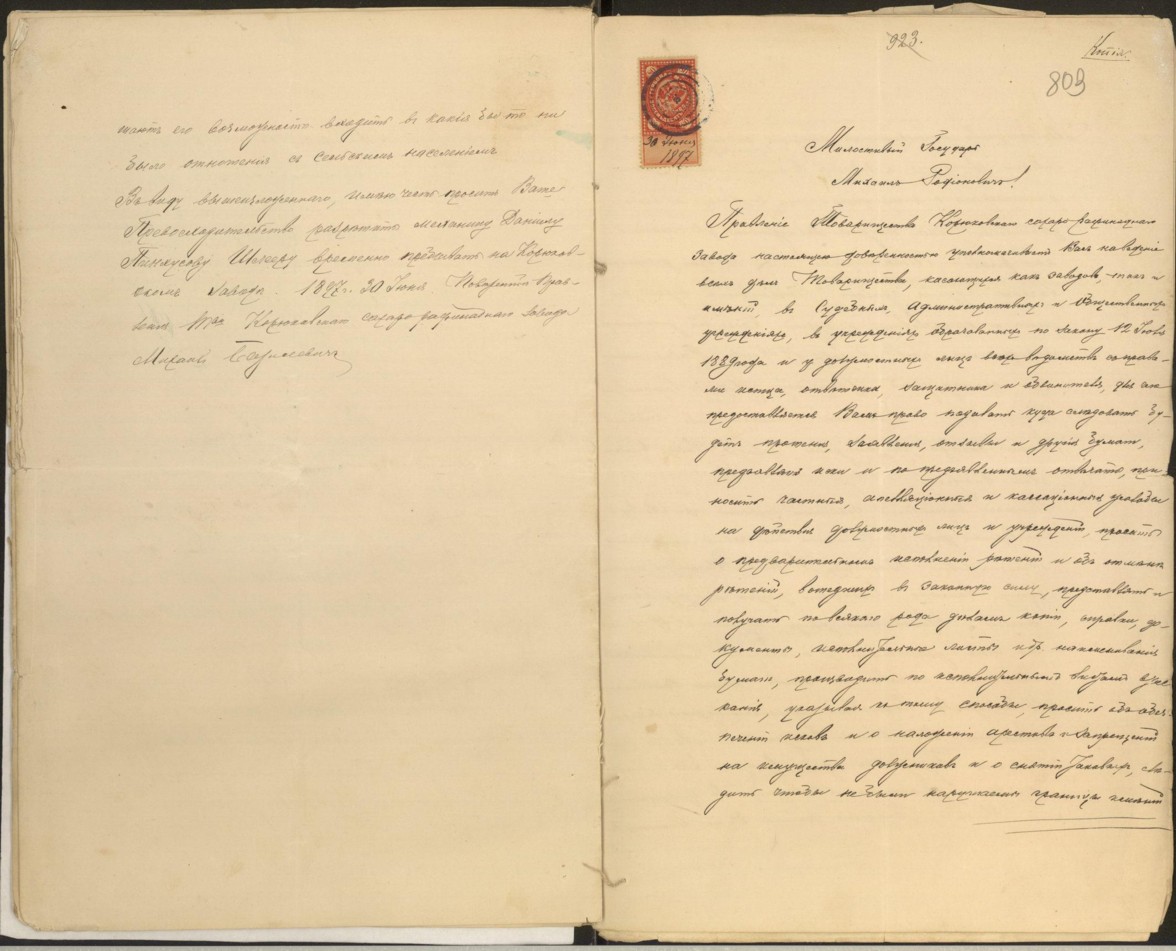 его возможность входить в какія бы то ни
было отношенія съ сельскимъ населеніемъ.
Въ виду вышеизложеннаго, имѣю честь просить Ваше
Превосходительство разрѣшить мѣщанину Даніилу
Пинкусову временно проживать на Корюков-
скомъ заводѣ. 1897 г. 30 Іюня Повѣренный Прав-
ленія Т-ва Корюковскаго сахаро-рафинаднаго завода
Михаилъ
923.
Копія.
809
30 Іюня
1897
Милостивый Государь
Михаилъ Родіоновичъ!
Правленіе Товарищества Корюковскаго сахаро-рафинаднаго
завода настоящею довѣренностью уполномочиваетъ Васъ на веденіе
всѣхъ дѣлъ Товарищества, касающихся какъ заводовъ, такъ и
имѣній, въ Судебныхъ, Административныхъ и Общественныхъ
учрежденіяхъ, въ учрежденіяхъ образованныхъ по закону 12 Іюля
1889 года и у должностныхъ лицъ всѣхъ вѣдомствъ съ права-
ми истца, отвѣтчика, защитника и обвинителя, для чего
предоставляется Вамъ право подавать куда слѣдовать бу-
детъ прошенія, заявленія, отзывы и другія бумаги,
предъявлять иски и по предъявленнымъ отвѣчать, при-
носить частныя, апелляціонныя и кассаціонныя жалобы
на дѣйствія должностныхъ лицъ и учрежденій, просить
о предварительномъ исполненіи рѣшеній и объ отмѣнѣ
рѣшеній, вошедшихъ въ законную силу, представлять и
получать по всякаго рода дѣламъ копіи, справки, до-
кументы, исполнительные листы и др. наименованія
бумаги, производить по исполнительнымъ листамъ взыс-
канія, указывая къ тому способы, просить объ обез-
печеніи исковъ и о наложеніи арестовъ и запрещеній
на имущества должниковъ и о снятіи таковыхъ, слѣ-
дить чтобы не были нарушаемы границы имѣній